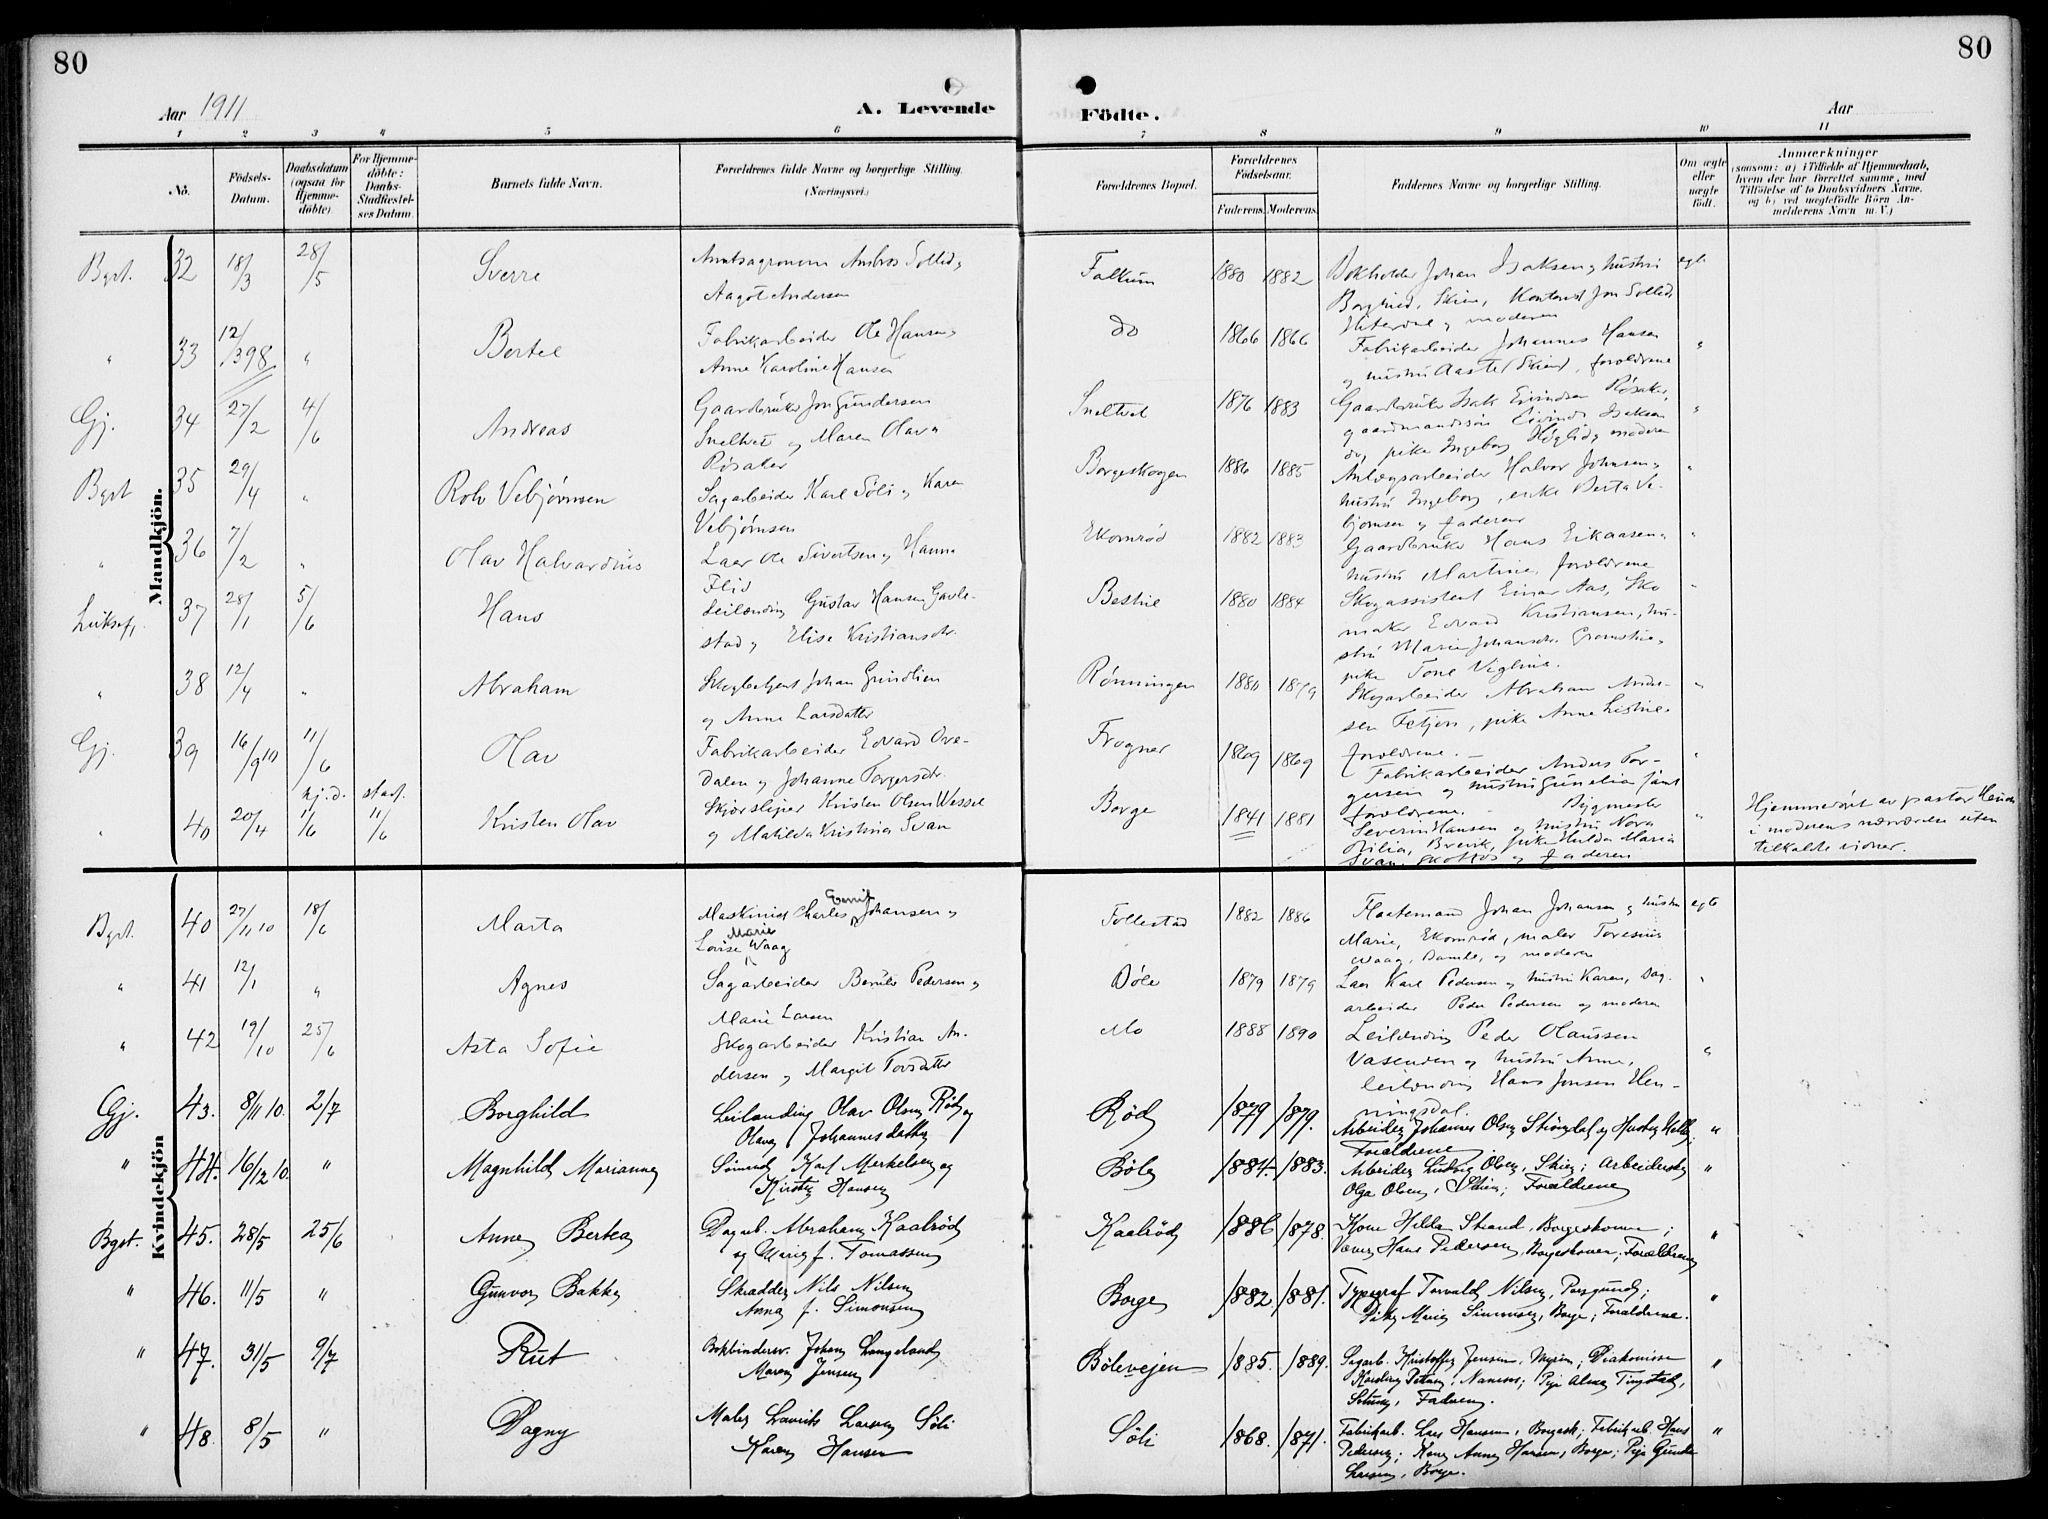 80
80
Aar 1911
A. Levende
Födte.
Aar
1 2 3 4 5 6 7 8 9 10 11
Nö.
Födsels-
Datum.
Daabsdatum
(ogsaa for
Hjemme-
döbte)
For Hjemme-
döbte:
Daabs-
Stadfæstel-
ses Datum.
Barnets fulde Navn.
Forældrenes fulde Navne og borgerlige Stilling.
(Næringsvei.)
Forældrenes Bopæl.
Forældrenes
Födselsaar.
Faderens. Moderens.
Faddernes Navne og borgerlige Stilling.
Om ægte
eller
uægte
født.
Anmærkninger
(saasom: a) i Tilfælde af Hjemmedaab,
hvem der har forrettet samme, med
Tilföielse af to Daabsvidners Navne.
og b) ved uægtefödte Börn An-
melderens Navn m. V.)
Mandkjön.
Bgst. 32 18/3 28/5 Sverre Amtsagronom Ambros Sollid og
Aagot Andersen
Falkum 1880 1882 Bokholder Johan Isaksen og hustru egte
Borghild, Skien, Kontorist Jon Sollid,
Hiterdal og moderen
" 33 12/3 98 " Bertel Fabrikarbeider Ole Hansen og
Anne Karoline Hansen
do 1866 1866 Fabrikarbeider Johannes Hansen "
og hustru Aaste (Skien), forældrene
Gj. 34 27/2 4/6 Andreas Gaardbruker Jon Gundersen
Sneltvet og Maren Olava
Røsaker
Sneltvet 1876 1883 Gaardbruker Isak Eivindsen Røsaker, "
gaardmandssøn Eivind Isaksen
do, pike Ingeborg Høglid og moderen
Bgst 35 29/4 " Rolv Vebjørnsen Sagarbeider Karl Søli og Karen
Vebjørnsen
Borgeskogen 1886 1885 Anlægsarbeider Halvor Johnsen og "
hustru Ingeborg, enke Berta Ve-
bjørnsen og faderen
" 36 7/2 " Olav Halvardius Laer Ole Sivertsen og Hanna
Flid
Ekornrød 1882 1883 Gaardbruker Hans Eikaasen og "
hustru Martine, forældrene
Luksef, 37 28/1 5/6 Hans Leilænding Gustav Hansen Gavle-
stad og Elise Kristiansdr.
Bestul 1880 1884 Skogassistent Einar Aas, Sko "
maker Edvard Kristiansen, hu-
stru Marie Johansdr.
pike Tone
" 38 12/4 " Abraham Skogbetjent Johan Grindlien
og Anne Larsdatter
Rønningen 1880 1879 Skogarbeider Abraham Ande- "
sen Fetjern, pike Anne
forældrene.
Gj. 39 16/9 10 11/6 Olav Fabrikarbeider Edvard Ove-
Dalen og Johanne Torgersdr.
Frogner 1869 1869 Fabrikarbeider Anders Tor- "
gersen og hustru Gunelia samt
forældrene.
" 40 20/4 hj.d. 11/6 stadf. 11/6 Kristen Olav Skjørsliper Kristen Olsen Wessel
og Matilda Kristina Svan
Borge 1841 1881 Bygmester "
Severin Hansen og hustru Nora
Otilia, Brevik, pike Hulda Maria
Svan, og faderen
Hjemmedøbt av pastor
i moderens nærværelse uten
tilkaldte vidner.
Kvindekjön
Bgst. 40 27/11 10 18/6 Marta Maskinist Charles Gerrit Johansen og
Lovise Marie Waag
Follestad 1882 1886 Flaatemand Johan Johansen og hustru egte
Marie, Ekornrød, maler Toresius
Waag, Bamle, og moderen
" 41 12/1 " Agnes Sagarbeider Bernt Pedersen og
Marie Larsen
Bøle 1879 1879 Laer Karl Pedersen og hustru Karen, Sag- "
arbeider Peder Pedersen og moderen
" 42 19/10 25/6 Asta Sofie Skogarbeider Kristian An-
dersen og Margit Torsdatter
Mo 1888 1890 Leilænding Peder Olaussen "
Vasenden og hustru Anne,
leilænding Hans Jonsen Hen-
ningsdal.
Gj. 43. 8/11 10. 2/7 Borghild Leilænding Olav Olsen Rød og
Olava Johannesdatter
Rød 1879 1879. Arbeider Johannes Olsen Stiøgdal og Hustru "
Forældrene
" 44. 16/12 10. " Magnhild Marianne Sømand Karl Merkelsen og
Kirsten Hansen
Bøle 1884. 1883. Arbeider Ludvig Olsen, Skien; Arbeiderske "
Olga Olsen, Skien; Forældrene
Bgst. 45. 28/5 25/6 Anne Bertea Dagarb. Abraham Kaalrød
og Marie f. Tomassen
Kaalrød 1886 1878. Kone Hella Strand, Borgeskoven; "
Væver Hans Pedersen, Borgeskoven; Forældrene
" 46. 11/5 " Gunvor Bakke Skrædder Nils Nilsen
Anna f. Simonsen
Borge 1882 1881. Typograf Torvald Nilsen, Porsgrund; "
Pike Marie Simonsen, Borge; Forældrene.
" 47. 31/5 9/7 Rut Bokbindersv. Johan Langeland
Maren Jensen
Bølevejen 1885. 1889. Sagarb. Kristoffer Jensen, Myren; Diakonisse "
Karoline Namsos; Pige Alma Tingstad,
Faderen.
" 48. 8/5 " Dagny Maler Lavrits Larsen Søli
Karen Hansen
Søli 1868. 1871. Fabrikarb. Lars Hansen, Borgesk; Fabrikarb. Hans "
Pedersen; Kone Anne Hansen, Borge; Pige Gunda
Larsen, Borge.